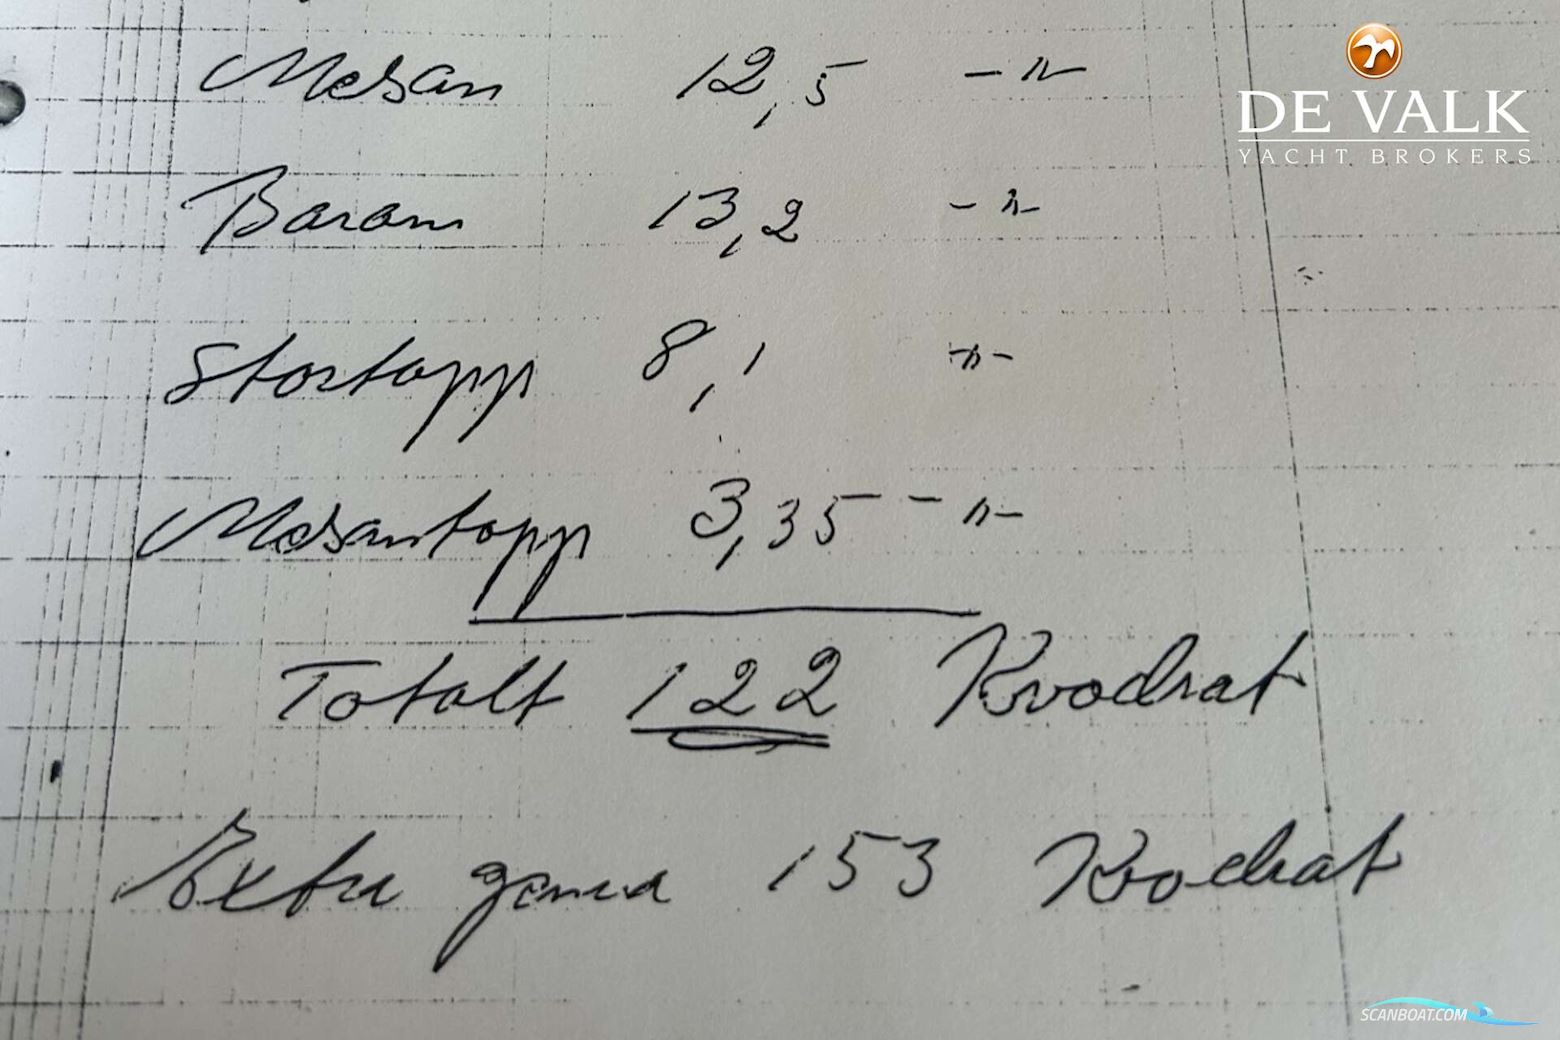 Mesan 12,5 -"-
DE VALK
YACHT BROKERS
Barom 13,2 -"-
Stortopp 8,1 -"-
Mesantopp 3,35 -"-
Totalt 122 Kvadrat
Extra 153 Kvadrat
SCANBOAT.COM